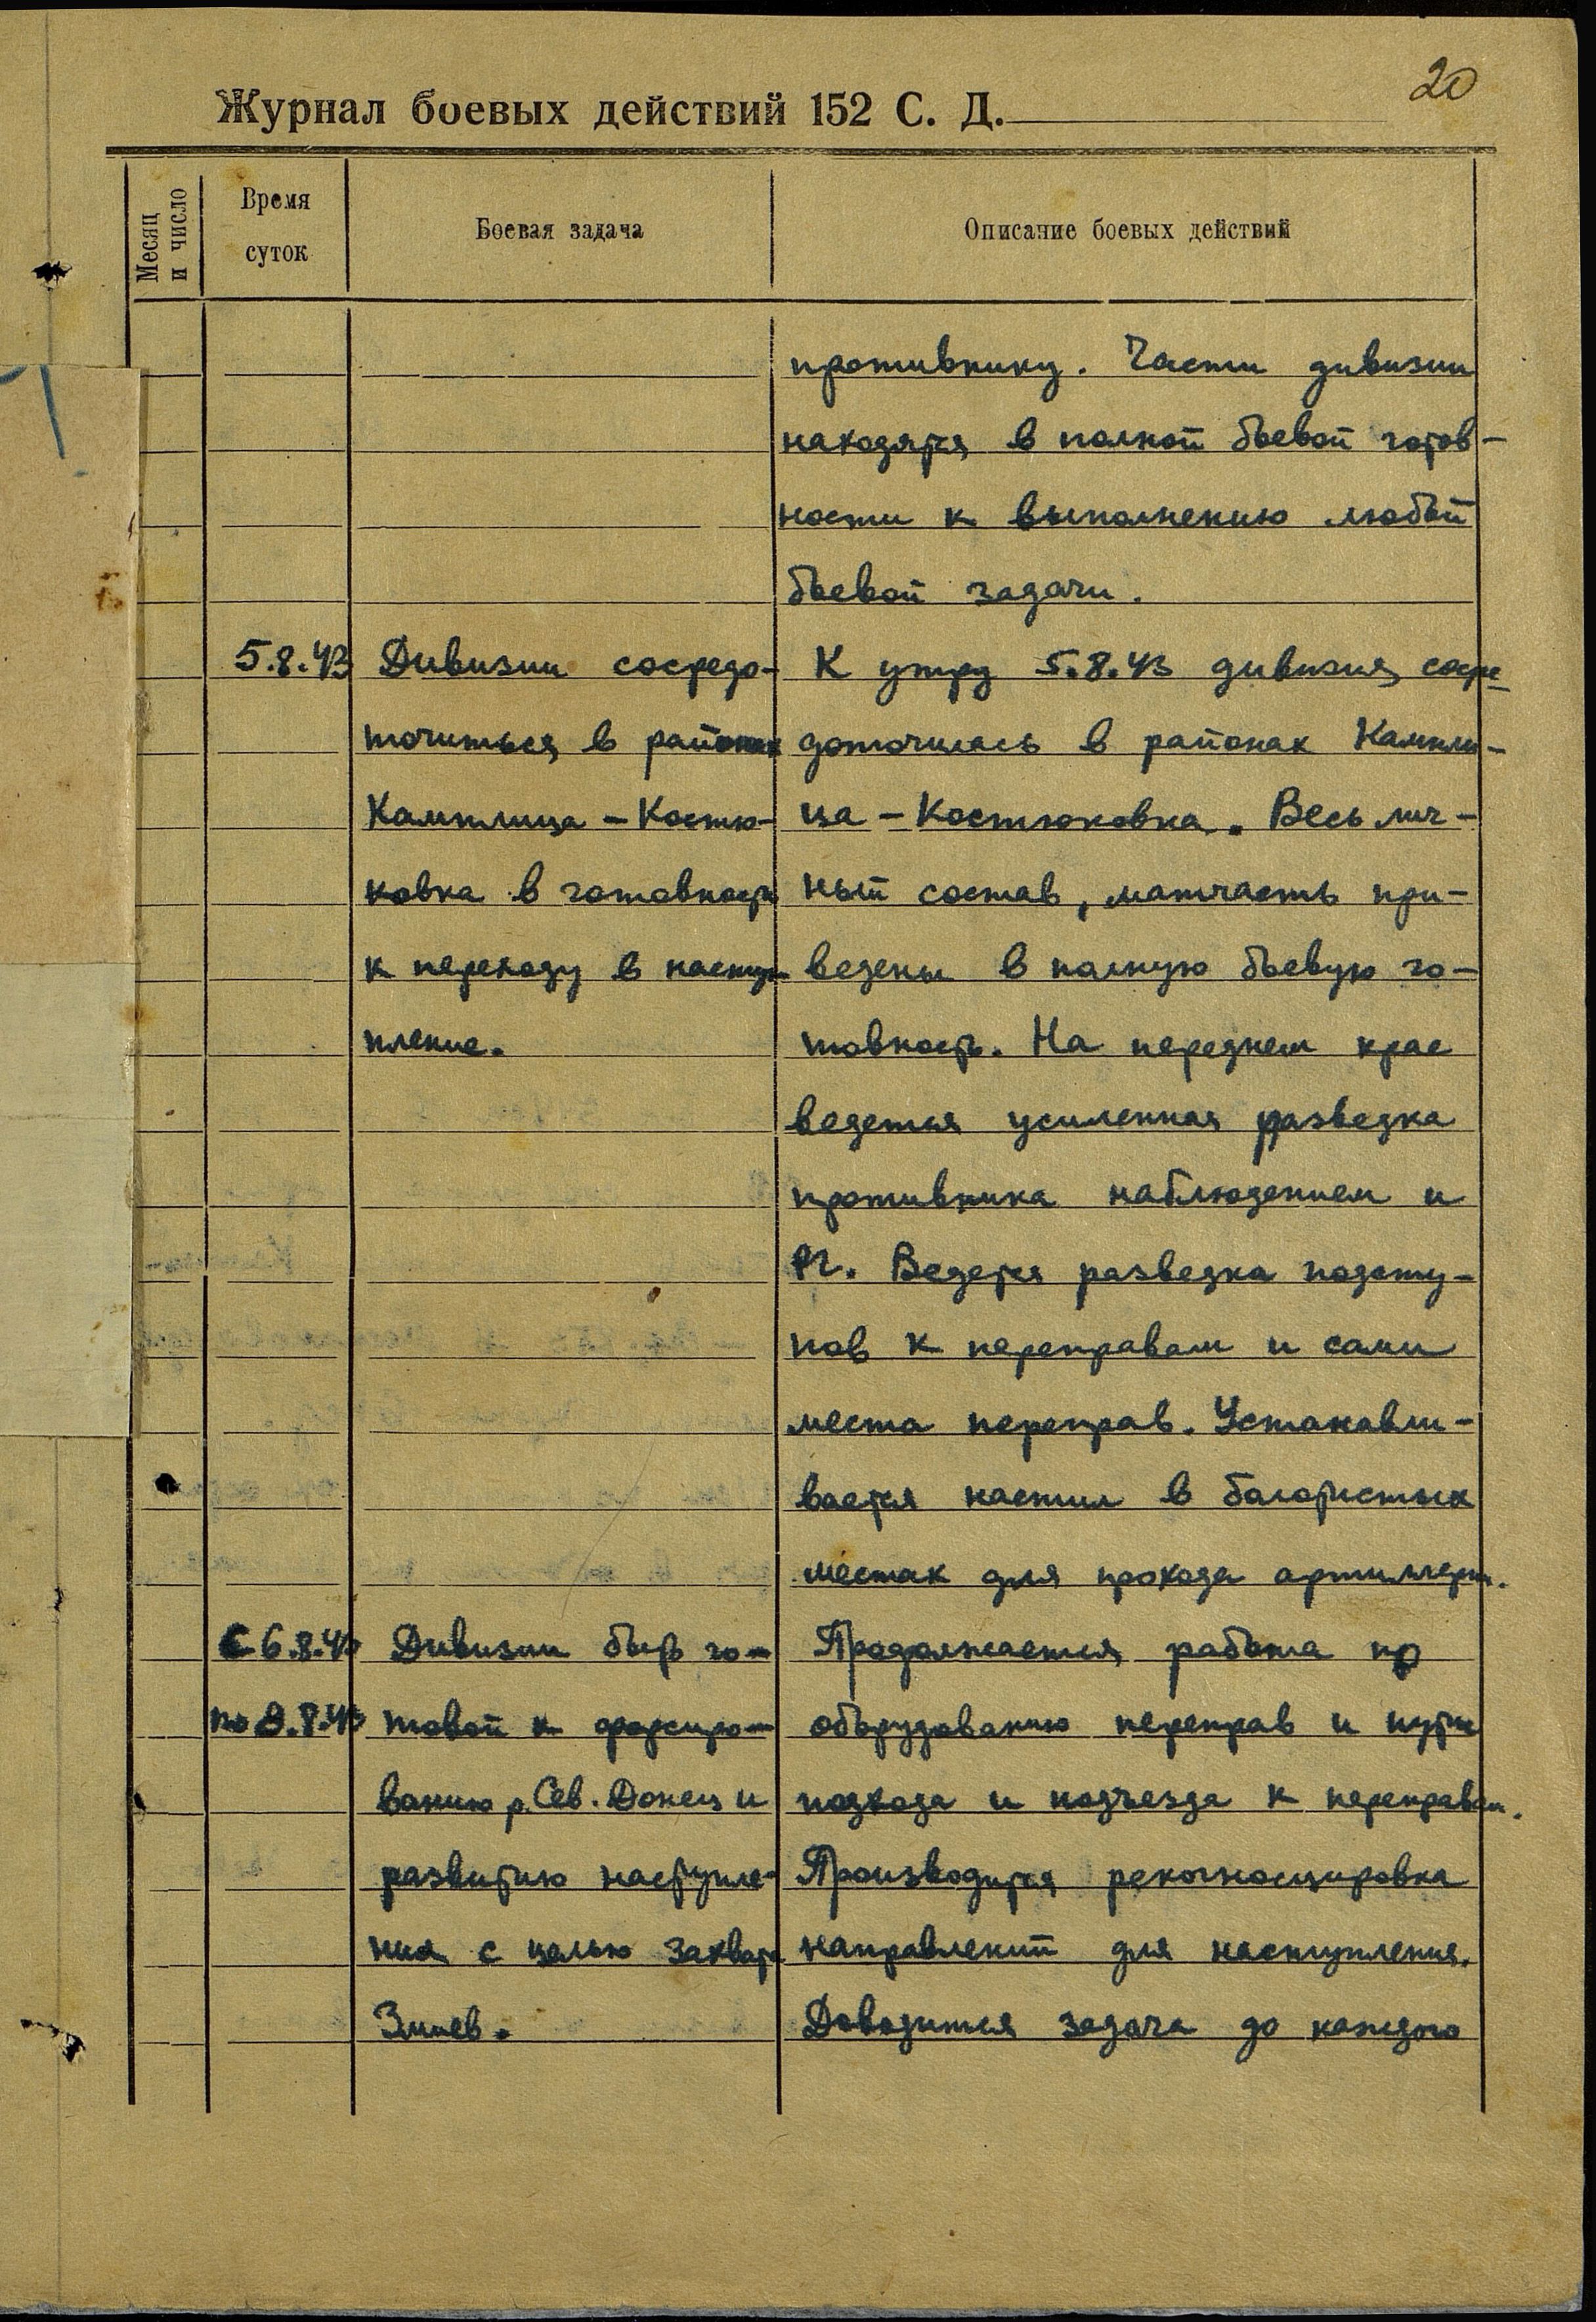 20
Журнал боевых действий 152 С. Д.
Месяц и число
Время суток
Боевая задача
Описание боевых действий
противнику. Части дивизии
находятся в полной боевой готов-
ности к выполнению любой
боевой задачи.
5.8.43
Дивизии сосредо-
точиться в районах
Камплица - Костю-
ковка в готовности
к переходу в насту-
пление.
К утру 5.8.43 дивизия сосре-
доточилась в районах Кампли-
ца - Костюковка. Весь лич-
ный состав, матчасть при-
ведены в полную боевую го-
товность. На переднем крае
ведеться усиленная разведка
противника наблюдением и
РГ. Ведется разведка подсту-
пов к переправам и сами
места переправ. Устанавли-
вается настил в болотистых
местах для прохода артиллерии.
С 6.8.43
по 8.8.43
Дивизии быть го-
товой к форсиро-
ванию р. Сев. Донец и
развитию наступле-
ния с целью захвата
Змиев.
Продолжается работа по
оборудованию переправ и пути
подхода и подъезда к переправам.
Производится рекогносцировка
направлений для наступления.
Доводится задача до каждого